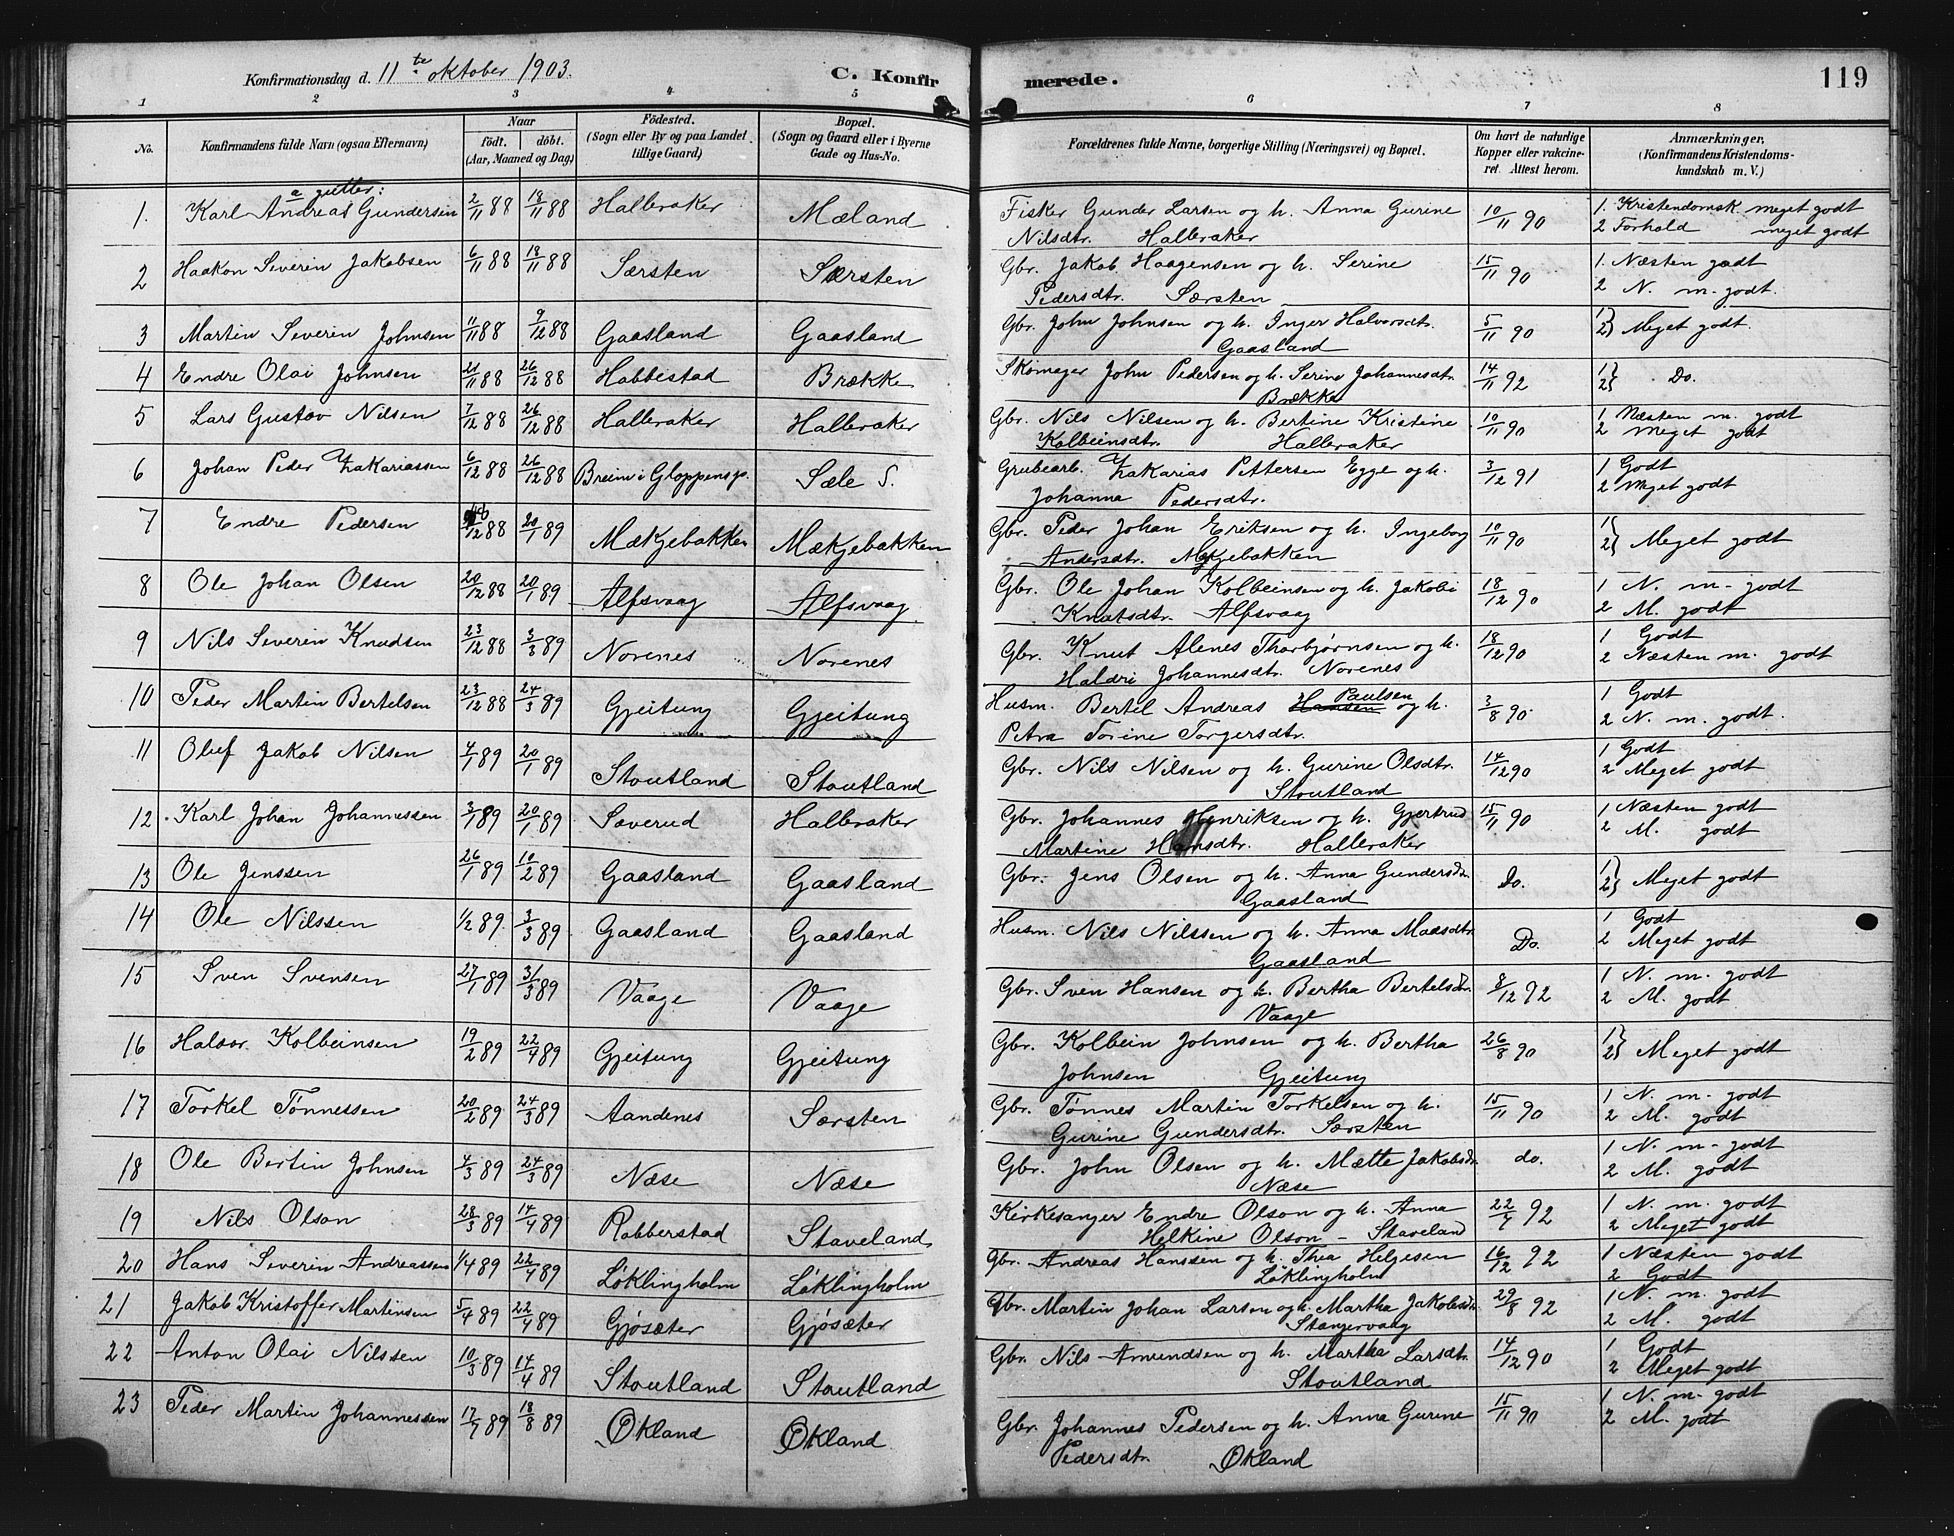 Konfirmationsdag d. 11te oktober 1903.
C. Konfirmerede.
119
1 2 3 4 5 6 7 8
No.
Konfirmandens fulde Navn (ogsaa Efternavn)
Naar
födt. döbt.
(Aar, Maaned og Dag)
Födested.
(Sogn eller By og paa Landet tillige Gaard)
Bopæl.
(Sogn og Gaard eller i Byerne Gade og Hus-No.
Forældrenes fulde Navne, borgerlige Stilling (Næringsvei) og Bopæl.
Om havt de naturlige Kopper eller vakcineret. Attest herom.
Anmærkninger,
(Konfirmandens Kristendomskundskab m. V.)
a gutter:
1. Karl Andreas Gundersen 2/11 88 18/11 88 Halleraker Mæland Fisker Gunder Larsen og h. Anna Gurine 10/11 90 1. Kristendomsk. meget godt
Nilsdtr. Halleraker 2 Forhold meget godt
2 Haakon Severin Jakobsen 6/11 88 18/11 88 Særsten Særsten Gbr. Jakob Haagensen og h. Serine 15/11 90 1 Næsten godt
Pedersdtr. Særsten 2 N. m. godt.
3 Martin Severin Johnsen 11/11 88 9/12 88 Gaasland Gaasland Gbr. John Johnsen og h. Inger Halvorsdtr. 5/11 90 1 2} Meget godt.
Gaasland
4 Endre Olai Johnsen 21/11 88 26/12 88 Habbestad Brække Skomager John Pedersen og h. Serine Johannesdtr. 14/11 92 1 2} Do.
Brække
5 Lars Gustav Nilsen 7/12 88 26/12 88 Halleraker Halleraker Gbr. Nils Nilsen og h. Bertine Kristine 10/11 90 1 Næsten m. godt
Kolbeinsdtr. Halleraker 2 Meget godt
6 Johan Peder Zakariassen 6/12 88 26/12 88 Breim i Gloppensp. Sæle S. Grubearb. Zakarias Pettersen Egge og h. 3/12 91 1 Godt
Johanna Pedersdtr. 2 Meget godt
7 Endre Pedersen /12 88 20/1 89 Mækjebakken Mækjebakken Gbr. Peder Johan Eriksen og h. Ingeborg 10/11 90 1 2} Meget godt
Andersdtr. Mækjebakken
8 Ole Johan Olsen 20/12 88 20/1 89 Alfsvaag Alfsvaag Gbr. Ole Johan Kolbeinsen og h. Jakobi 18/12 90 1 N. m. godt
Knutsdtr. Alfsvaag 2 M. godt
9 Nils Severin Knudsen 23/12 88 3/3 89 Norenes Norenes Gbr. Knut Alenes Thorbjørnsen og h. 18/12 90 1 Godt
Haldri Johannesdtr. Norenes 2 Næsten m. godt
10 Peder Martin Bertelsen 23/12 88 24/3 89 Gjeitung Gjeitung Husm. Bertel Andreas Hansen Paulsen og h. 3/8 90 1 Godt
Petra Torine Torgersdtr. 2 N. m. godt.
11 Oluf Jakob Nilsen 4/1 89 20/1 89 Stoutland Stoutland Gbr. Nils Nilsen og h. Gurine Olsdtr. 14/12 90 1 Godt
Stoutland 2 Meget godt
12 Karl Johan Johannessen 3/1 89 20/1 89 Saverud Halleraker Gbr. Johannes Henriksen og h. Gjertrud 15/11 90 1 Næsten godt
Martine Hansdtr. Halleraker 2 M. godt
13 Ole Jenssen 26/1 89 10/2 89 Gaasland Gaasland Gbr. Jens Olsen og h. Anna Gundersdtr. Do. 1 2} Meget godt
Gaasland
14 Ole Nilssen 1/2 89 3/3 89 Gaasland Gaasland Husm. Nils Nilssen og h. Anna Maasdtr. Do. 1 Godt
Gaasland 2 Meget godt
15 Sven Svensen 27/1 89 31/3 89 Vaage Vaage Gbr. Sven Hansen og h. Bertha Bertelsdtr. 8/12 92 1 N. m. godt
Vaage 2 M. godt
16 Halvor Kolbeinsen 19/2 89 22/4 89 Gjeitung Gjeitung Gbr. Kolbein Johnsen og h. Bertha 26/8 90 1 2} Meget godt
Johnsen Gjeitung
17 Torkel Tönnessen 20/2 89 24/3 89 Aandenes Særsten Gbr. Tönnes Martin Torkelsen og h. 15/11 90 1 N. m. godt
Gurine Gundersdtr. Særsten 2 M. godt
18 Ole Bertin Johnsen 4/3 89 24/3 89 Næse Næse Gbr. John Olsen og h. Mætte Jakobsdtr. do. 1 N. m. godt
Næse 2 M. godt
19 Nils Olson 28/3 89 14/4 89 Robberstad Staveland Kirkesanger Endre Olson og h. Anna 22/7 92 1 N. m. godt
Helkine Olson - Staveland 2 Meget godt
20 Hans Severin Andreassen 1/4 89 22/4 89 Löklingholm Löklingholm Gbr. Andreas Hanssen og h. Thea Helgesen 16/12 92 1 Næsten godt
Löklingholm 2 Godt
21 Jakob Kristoffer Martinsen 5/4 89 22/4 89 Gjösæter Gjösæter Gbr. Martin Johan Larsen og h. Martha Jakobsdtr. 29/8 92 1 N. m. godt
Stangervaag 2 M. godt
22 Anton Olai Nilssen 10/3 89 14/4 89 Stoutland Stoutland Gbr. Nils Amundsen og h. Martha Larsdtr. 14/12 90 1 Godt
Stoutland 2 Meget godt
23 Peder Martin Johannessen 17/7 89 18/8 89 Økland Økland Gbr. Johannes Pedersen og h. Anna Gurine 15/11 90 1 N. m. godt
Pedersdtr. Økland 2 M. godt